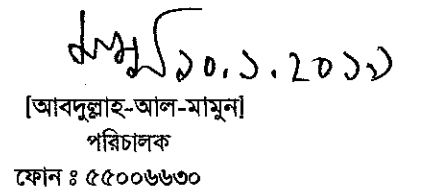 ১০.১.২০১৯
[আবদুল্লাহ-আল-মামুন]
পরিচালক
ফোন ঃ ৫৫০০৬৬৩০